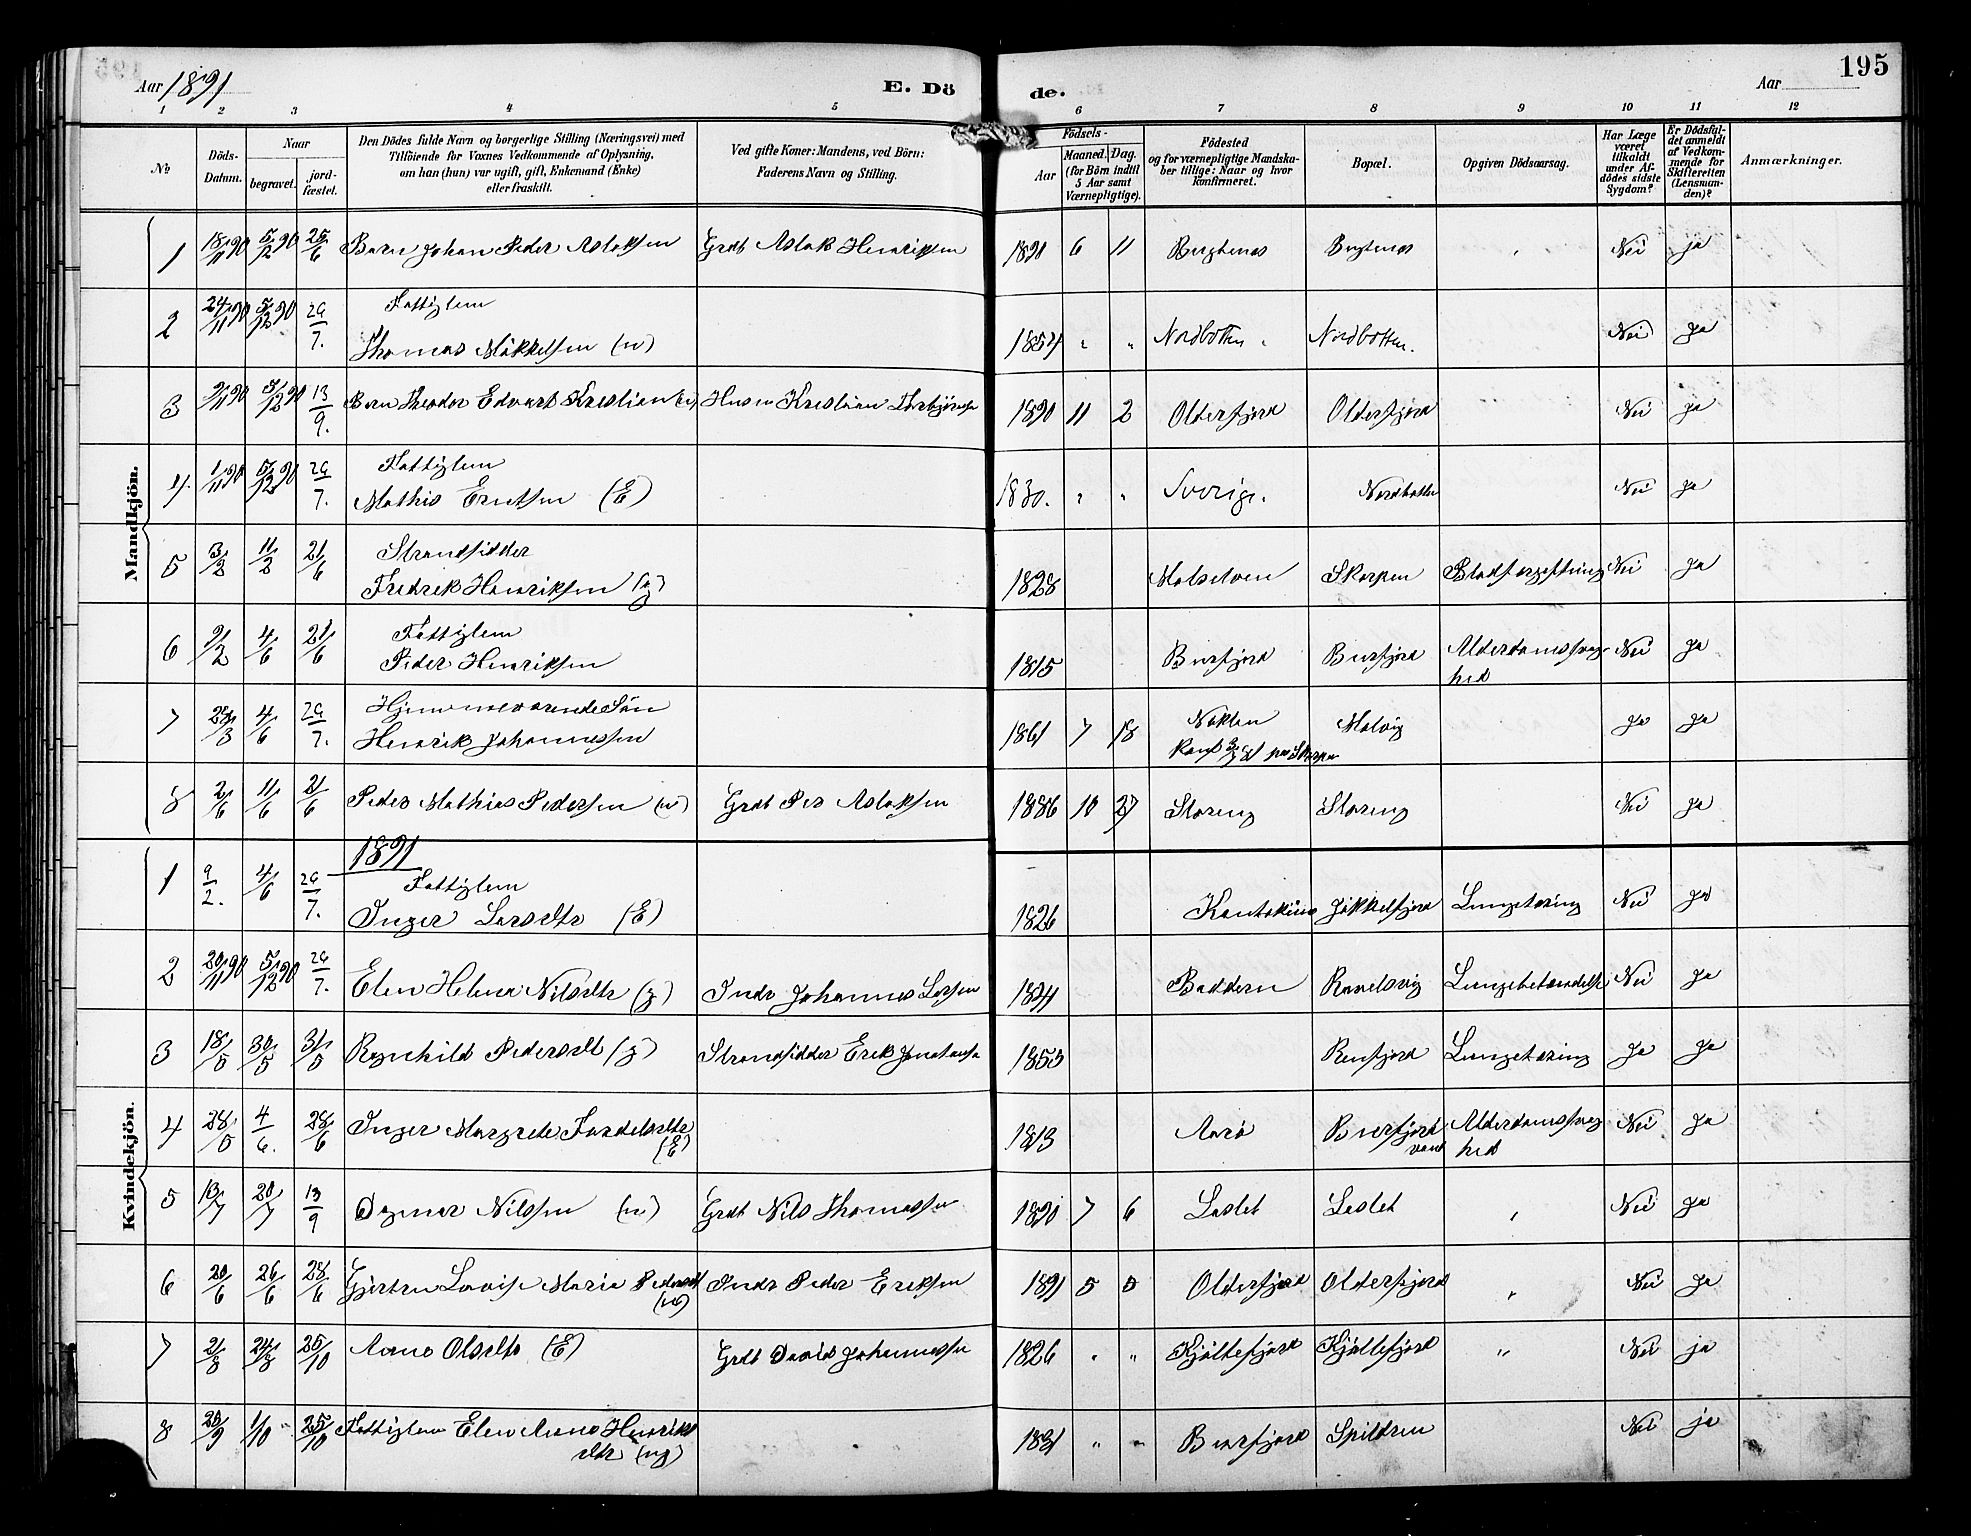 Aar 1891
E. Dö
de.
Aar
195
1 2 3 4 5 6 7 8 9 10 11 12
№
Döds-Datum.
Naar
begravet.
jord-fæstet.
Den Dödes fulde Navn og borgerlige Stilling (Næringsvei) med
Tilföiende for Voxnes Vedkommende af Oplysning,
om han (hun) var ugift, gift, Enkemand (Enke)
eller fraskilt.
Ved gifte Koner: Mandens, ved Börn:
Faderens Navn og Stilling.
Födsels-
Aar
Maaned. Dag.
(for Börn indtil
5 Aar samt
Værnepligtige).
Födested
og for værnepligtige Mandska-
ber tillige: Naar og hvor
konfirmeret.
Bopæl.
Opgiven Dödsaarsag.
Har Læge
været
tilkaldt
under Af-
dödes sidste
Sygdom?
Er Dödsfal-
det anmeldt
af Vedkom-
mende for
Skifteretten
(Lensman-
den)?
Anmærkninger.
Mandkjön.
1 18/11 90 5/12 90 25/6 Barn Johan Peder Aslaksen Grdb Aslak Henriksen 1890 6 11 Nei ja
2 24/11 90 5/12 90 29/7. Fattiglem
Thomas Mikkelsen 1854 " " Nordbotten Nordbotten. Nei Ja
3 5/12 90 13/9. Barn Theodor Edvart Kristian Kristian 1890 11 2 Olderfjord Olderfjord Nei Ja
4. 1/11 90 5/12 90 29/7. Fattiglem
Mathis (E) 1830. " " Sverige. Nordbotten Nei Ja
5 3/2 11/2 21/6 Strandsidder
Fredrek Henriksen (g) 1828 Skorpen Nei Ja
6 4/6 21/6 Fattiglem
Peder Henriksen 1815 Burfjord Burfjord Alderdomssvag-
hed Nei Ja
7 4/6 29/7. Hjemmeværende Sön
Henrik Johannessen 1861 7 18 Ja Ja
8 2/6 11/6 21/6 Peder Mathias Pedersen Grdb Per Aslaksen 1886 10 27 Storeng Storeng Nei Ja
Kvindekjön.
1891
1 9/2. 4/6 29/7. Fattiglem
Inger Larsdtr (E) 1826 Kautokeino Jökkelfjord Lungetæring Nei Ja
2 20/11 90 5/12 90 29/7. Elen Helena Nilsdtr (g) Indr Johannes Larsen Baddern Lungebetændelse Nei Ja
3 18/5 30/5 31/5 Ragnhild Pedersdt (g) Strandsidder Erik 1853 Lungetæring Ja Ja
4 28/5 4/6. 28/6 Inger Margrete
(E) 1813 Burfjord
vand Alderdomssvag
hed Nei Ja
5 13/7 20/7 13/9 Dagmar Nilssen Grdb Nils Thomassen 1890 7 6 Laslet Laslet " Nei Ja
6 20/6 26/6 28/6 Lovise Marie Pedersdt Indr Peder Eriksen 1891 5 5 Olderfjord Olderfjord " Nei Ja
7 25/10 Anne Olsdtr (E) Grdb David Johannessen 1826 " " Nei ja
8 1/10 25/10 Fattiglem Elen Anne Henriks
dtr (ug) " " Burfjord Spildren Nei ja